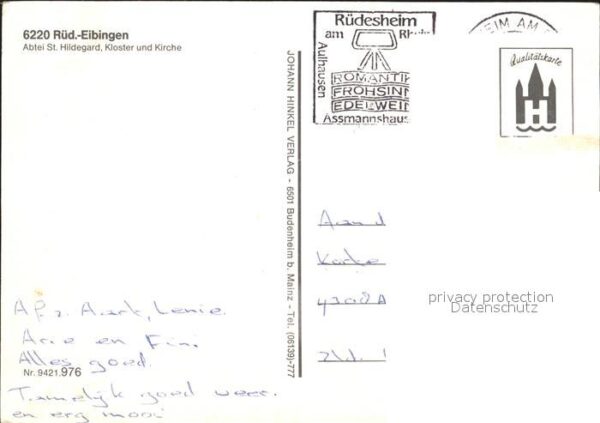 6220 Rüd.-Eibingen
Abtei St. Hildegard, Kloster und Kirche
Rüdesheim
am Rhein
Aulhausen
ROMANTIK
FROHSINN
EDELWEIN
Assmannshausen
EIM AM
Qualitätskarte
H
JOHANN HINKEL VERLAG - 6501 Budenheim b. Mainz - Tel. (06139)-777
privacy protection
Datenschutz
Afz. Aart, Lenie.
Arie en Fin.
Alles goed.
Nr. 9421.976
Tamelijk goed weer.
en erg mooi